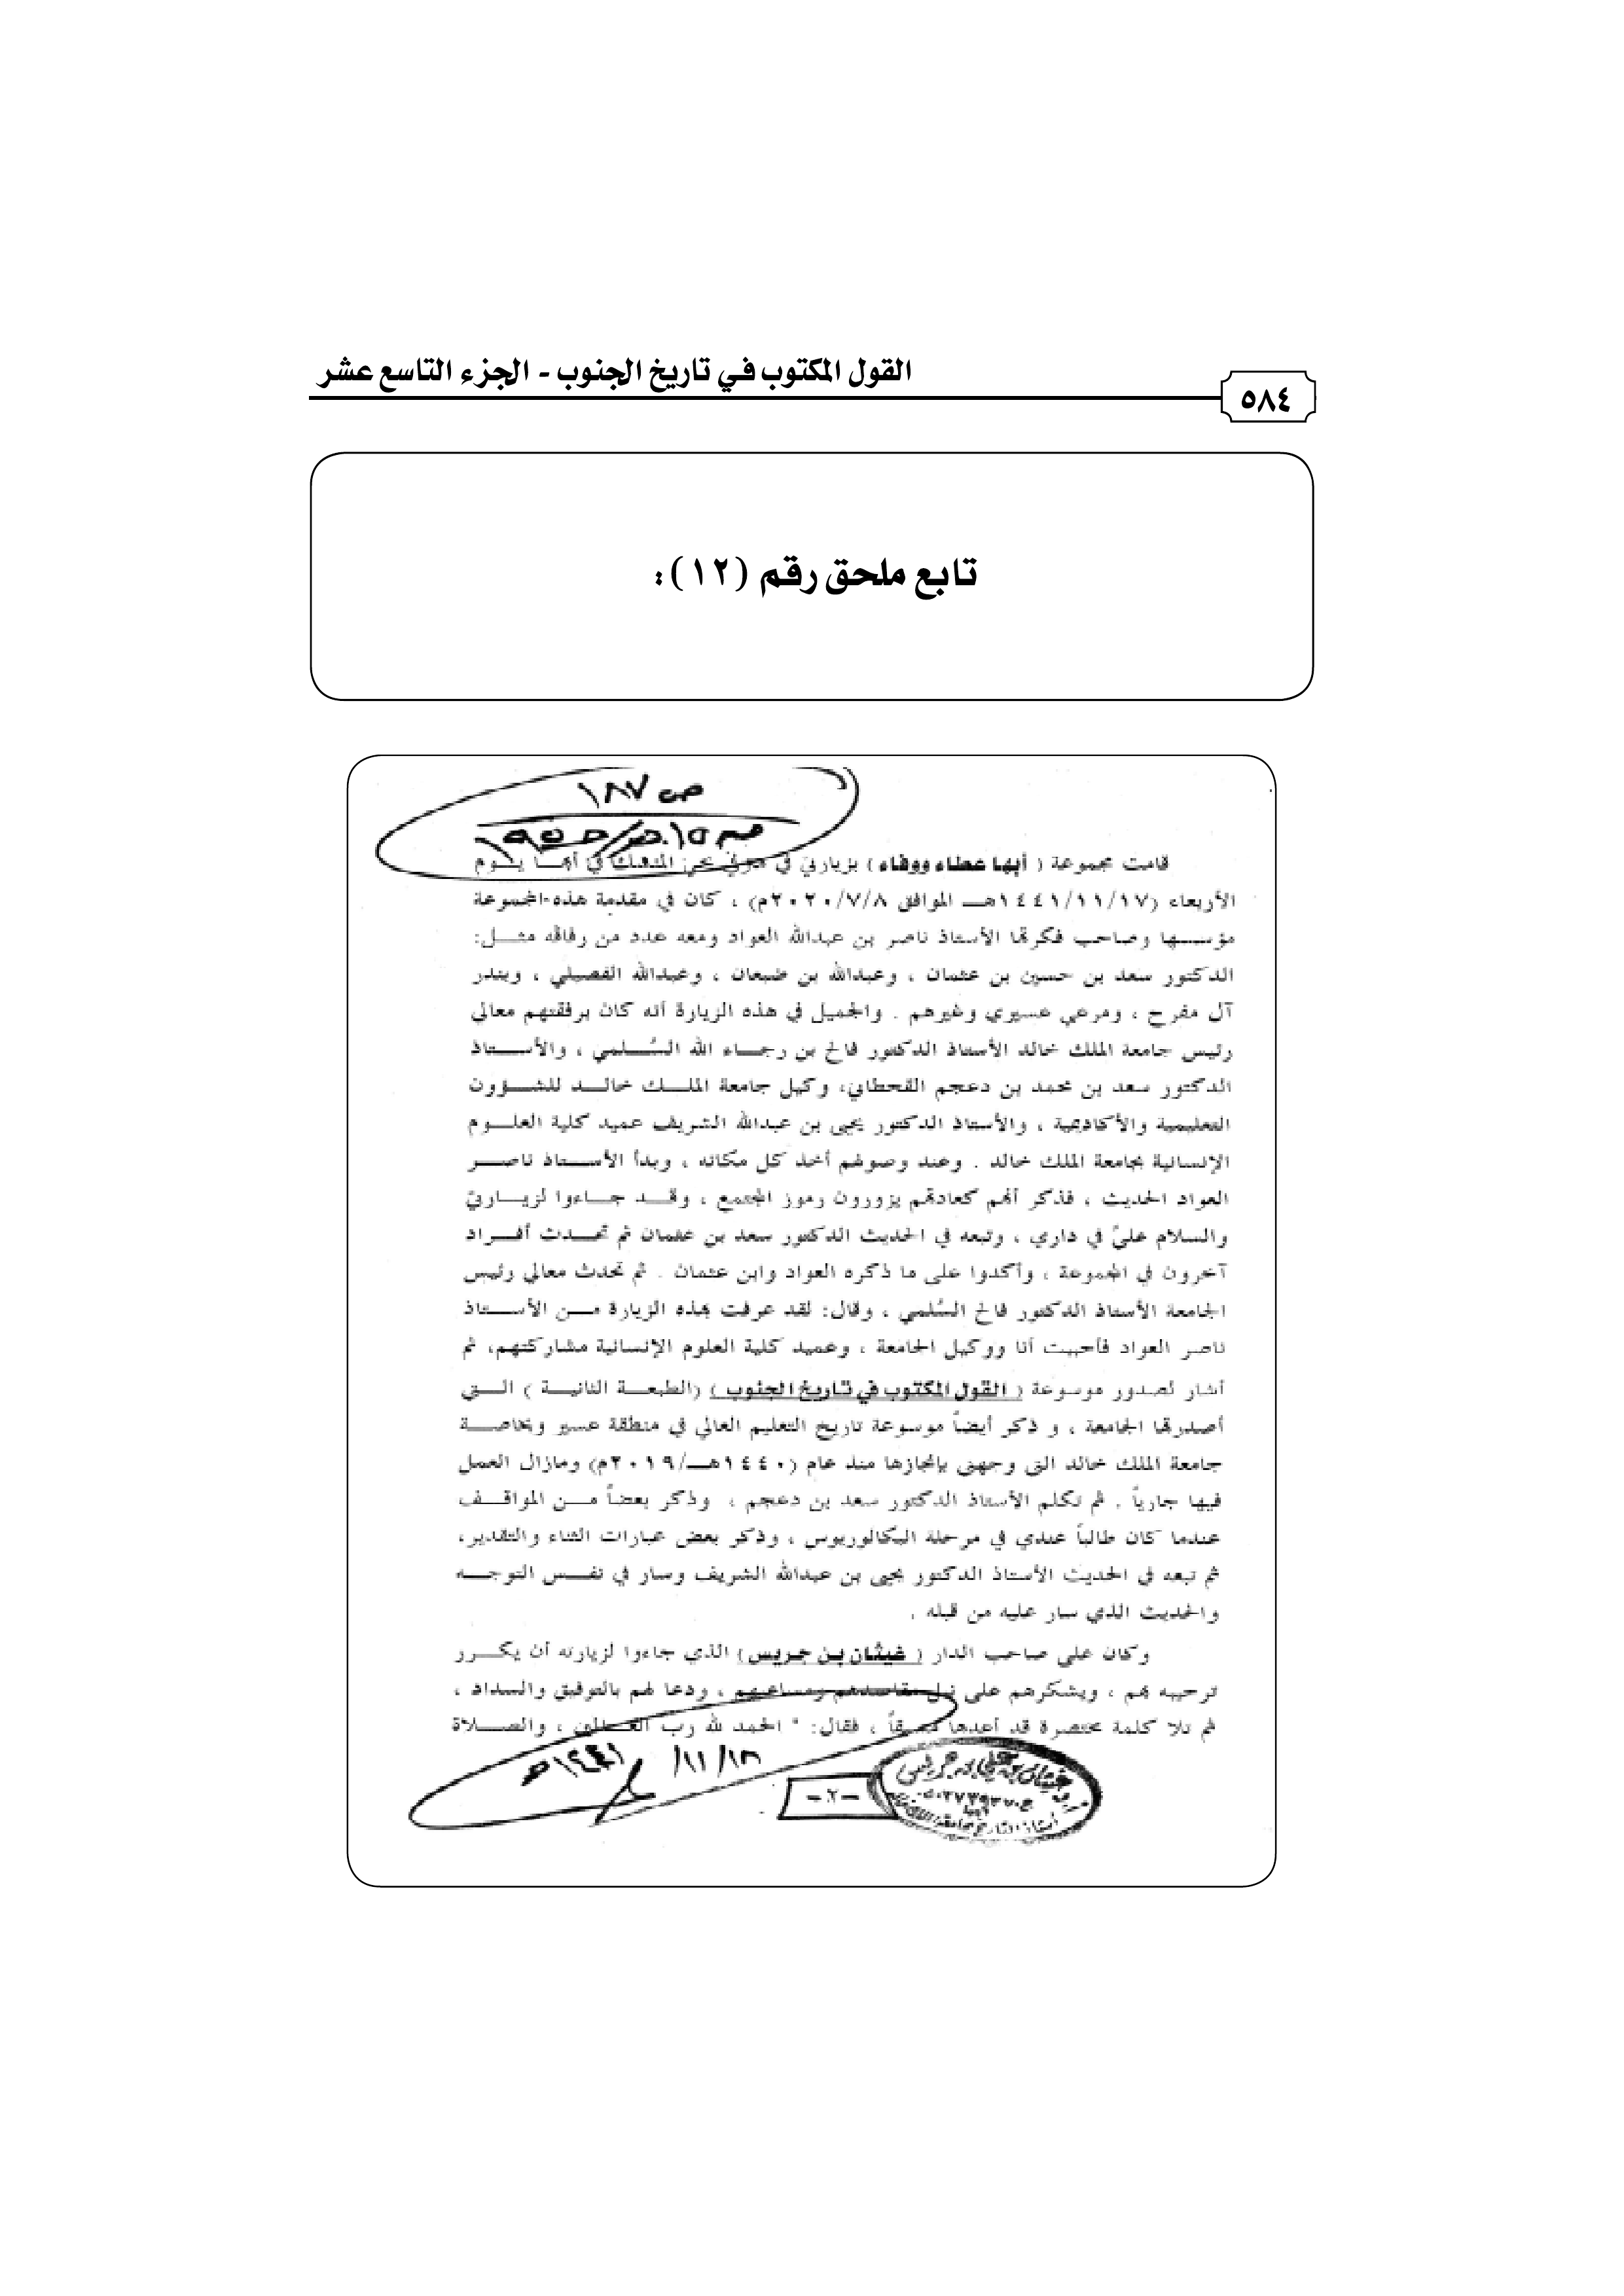 القول المكتوب في تاريخ الجنوب - الجزء التاسع عشر
٥٨٤
تابع ملحق رقم (١٢):
ص ١٨٧
قامت مجموعة ( أبها عطاء ووفاء ) بزيارتي في منزلي بحي المنسك في أبها يوم
الأربعاء (١٤٤١/١١/١٧هـ الموافق ٢٠٢٠/٧/٨م) ، كان في مقدمة هذه المجموعة
مؤسسها وصاحب فكرتها الأستاذ ناصر بن عبدالله العواد ومعه عدد من رفاقه مثل:
الدكتور سعد بن حسين بن عثمان ، وعبدالله بن ضبعان ، وعبدالله الفصيلي ، وبندر
آل مفرح ، ومرعي عسيري وغيرهم . والجميل في هذه الزيارة أنه كان برفقتهم معالي
رئيس جامعة الملك خالد الأستاذ الدكتور فالح بن رجاء الله السُّلمي ، والأستاذ
الدكتور سعد بن محمد بن دعجم القحطاني، وكيل جامعة الملك خالد للشؤون
التعليمية والأكاديمية ، والأستاذ الدكتور يحيى بن عبدالله الشريف عميد كلية العلوم
الإنسانية بجامعة الملك خالد . وعند وصولهم أخذ كل مكانه ، وبدأ الأستاذ ناصر
العواد الحديث ، فذكر أنهم كعادتهم يزورون رموز المجتمع ، وقد جاءوا لزيارتي
والسلام عليّ في داري ، وتبعه في الحديث الدكتور سعد بن عثمان ثم تحدث أفراد
آخرون في المجموعة ، وأكدوا على ما ذكره العواد وابن عثمان . ثم تحدث معالي رئيس
الجامعة الأستاذ الدكتور فالح السُّلمي ، وقال: لقد عرفت بهذه الزيارة من الأستاذ
ناصر العواد فأحببت أنا ووكيل الجامعة ، وعميد كلية العلوم الإنسانية مشاركتهم، ثم
أشار لصدور موسوعة ( القول المكتوب في تاريخ الجنوب ) (الطبعة الثانية ) التي
أصدرتها الجامعة ، و ذكر أيضاً موسوعة تاريخ التعليم العالي في منطقة عسير وبخاصة
جامعة الملك خالد التي وجهني بإنجازها منذ عام (١٤٤٠هـ/٢٠١٩م) ومازال العمل
فيها جارياً . ثم تكلم الأستاذ الدكتور سعد بن دعجم ، وذكر بعضاً من المواقف
عندما كان طالباً عندي في مرحلة البكالوريوس ، وذكر بعض عبارات الثناء والتقدير،
ثم تبعه في الحديث الأستاذ الدكتور يحيى بن عبدالله الشريف وسار في نفس التوجه
والحديث الذي سار عليه من قبله .
وكان على صاحب الدار ( غيثان بن جريس ) الذي جاءوا لزيارته أن يكرر
ترحيبه بهم ، ويشكرهم على نبل مقاصدهم ومساعيهم ، ودعا لهم بالتوفيق والسداد ،
ثم تلا كلمة مختصرة قد أعدها مسبقاً ، فقال: " الحمد لله رب العالمين ، والصلاة
١٤٤١/١١/١٨هـ
-٢-